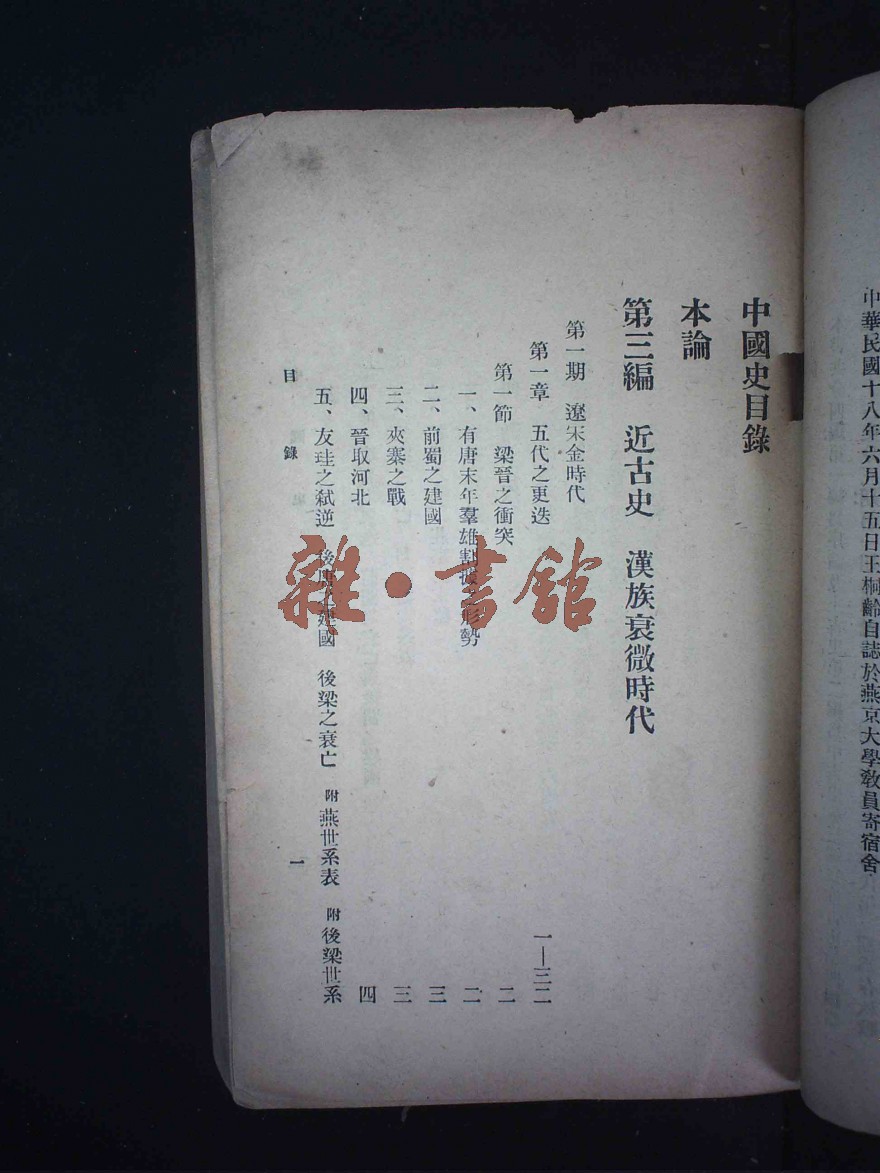 中華民國十八年六月十五日王桐齡自誌於燕京大學教員寄宿舍
中國史目錄
本論
第三編　近古史　漢族衰微時代
第一期　遼宋金時代
第一章　五代之更迭　一—三二
第一節　梁晉之衝突　二
一、有唐末年羣雄割據之形勢　二
二、前蜀之建國　三
三、夾寨之戰　三
四、晉取河北　四
五、友珪之弒逆　後唐之建國　後梁之衰亡　附燕世系表　附後梁世系
目錄　一
雜·書館